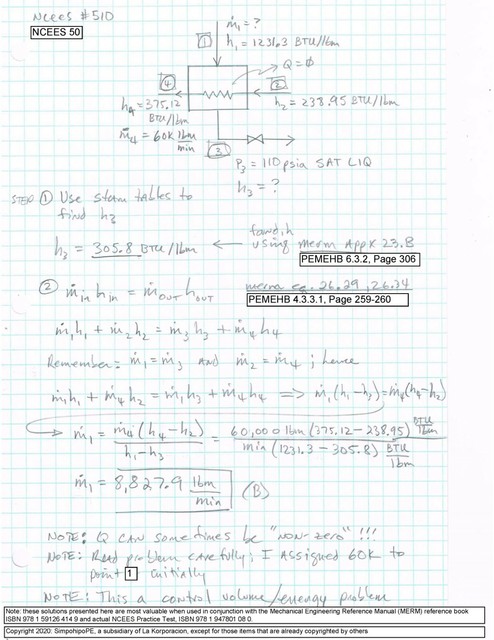 NCEES #510
NCEES 50
ṁ₁ = ?
h₁ = 1231.3 BTU/lbm
1
Q = ∅
4
2
h₄ = 375.12 BTU/lbm
h₂ = 238.95 BTU/lbm
ṁ₄ = 60K lbm/min
3
P₃ = 110 psia SAT LIQ
h₃ = ?
STEP ① Use steam tables to
find h₃
h₃ = 305.8 BTU/lbm ← found, h
using merm Appx 23.B
PEMEHB 6.3.2, Page 306
② ṁ_IN h_IN = ṁ_OUT h_OUT
merm eq. 26.29, 26.34
PEMEHB 4.3.3.1, Page 259-260
ṁ₁h₁ + ṁ₂h₂ = ṁ₃h₃ + ṁ₄h₄
Remember: ṁ₁ = ṁ₃ AND ṁ₂ = ṁ₄ ; hence
ṁ₁h₁ + ṁ₄h₂ = ṁ₁h₃ + ṁ₄h₄ ⇒ ṁ₁(h₁-h₃) = ṁ₄(h₄-h₂)
ṁ₁ = ṁ₄(h₄-h₂) / h₁-h₃ = 60,000 lbm (375.12 - 238.95) BTU/lbm / min (1231.3 - 305.8) BTU/lbm
ṁ₁ = 8,827.9 lbm/min (B)
NOTE: Q CAN sometimes be "NON-zero" !!!
NOTE: Read problem carefully; I assigned 60K to
point 1 initially
NOTE: This a control volume/energy problem
Note: these solutions presented here are most valuable when used in conjunction with the Mechanical Engineering Reference Manual (MERM) reference book
ISBN 978 1 59126 414 9 and actual NCEES Practice Test, ISBN 978 1 947801 08 0.
Copyright 2020: SimpohipoPE, a subsidary of La Korporacion, except for those items that are already copyrighted by others